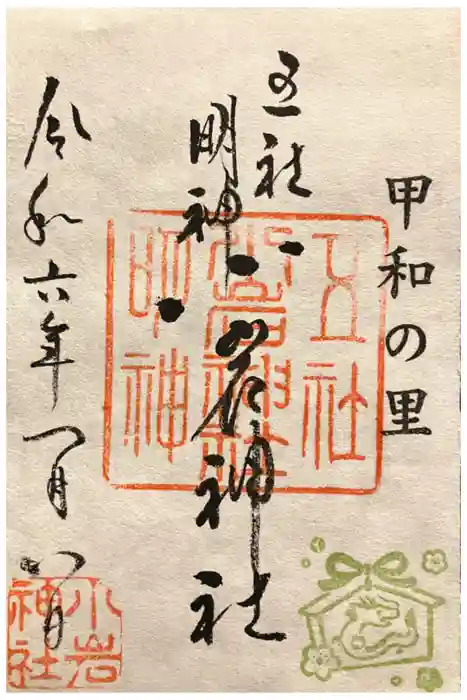 甲和の里
五社
明神
小岩神社
令和六年一月八日
五社
小岩神社
明神
小岩
神社